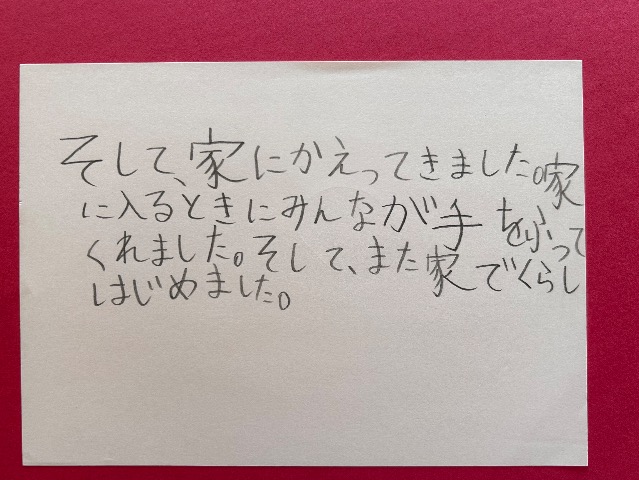 そして、家にかえってきました。家
に入るときにみんなが手をふって
くれました。そして、また家でくらし
はじめました。